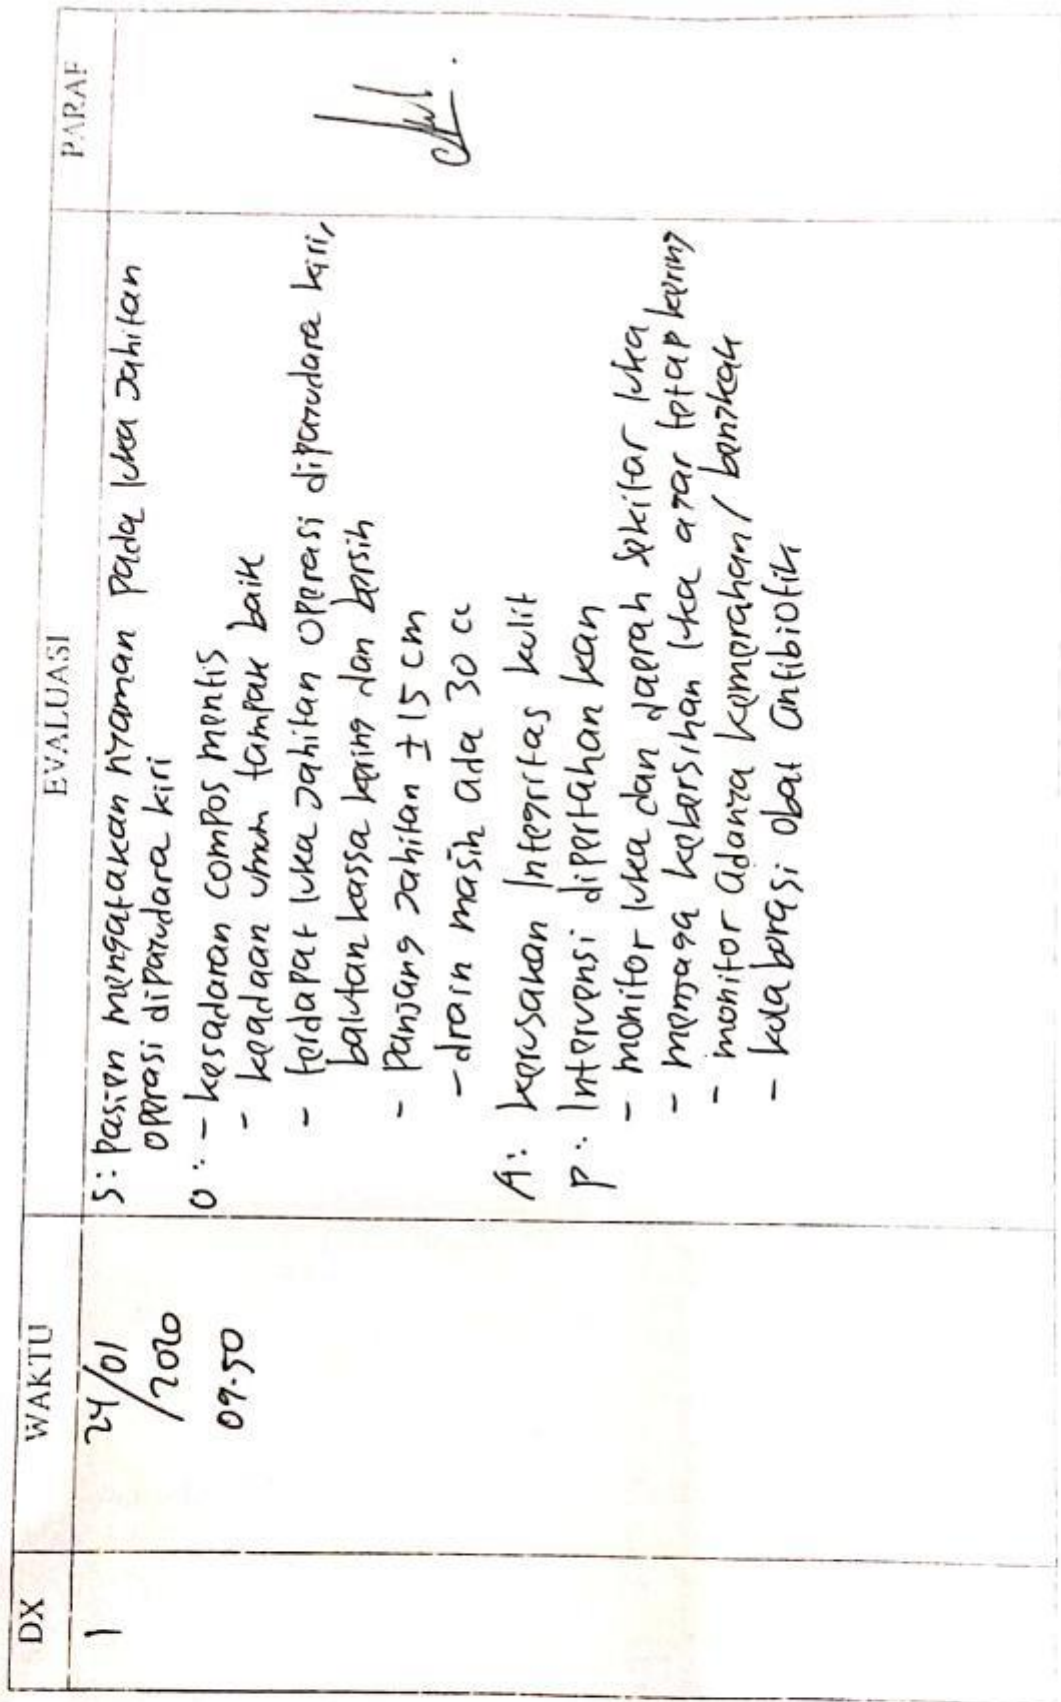 DX WAKTU EVALUASI PARAF
1 24/01 S: Pasien mengatakan nyaman pada luka jahitan
/2020 operasi dipayudara kiri
09.50 O: - kesadaran compos mentis
- keadaan umum tampak baik
- terdapat luka jahitan operasi dipayudara kiri,
balutan kassa kering dan bersih
- Panjang jahitan ± 15 cm
- drain masih ada 30 cc
A: kerusakan Integritas kulit
P: Intervensi dipertahan kan
- monitor luka dan daerah sekitar luka
- menjaga kebersihan luka agar tetap kering
- monitor adanya kemerahan / bengkak
- kolaborasi obat antibiotik